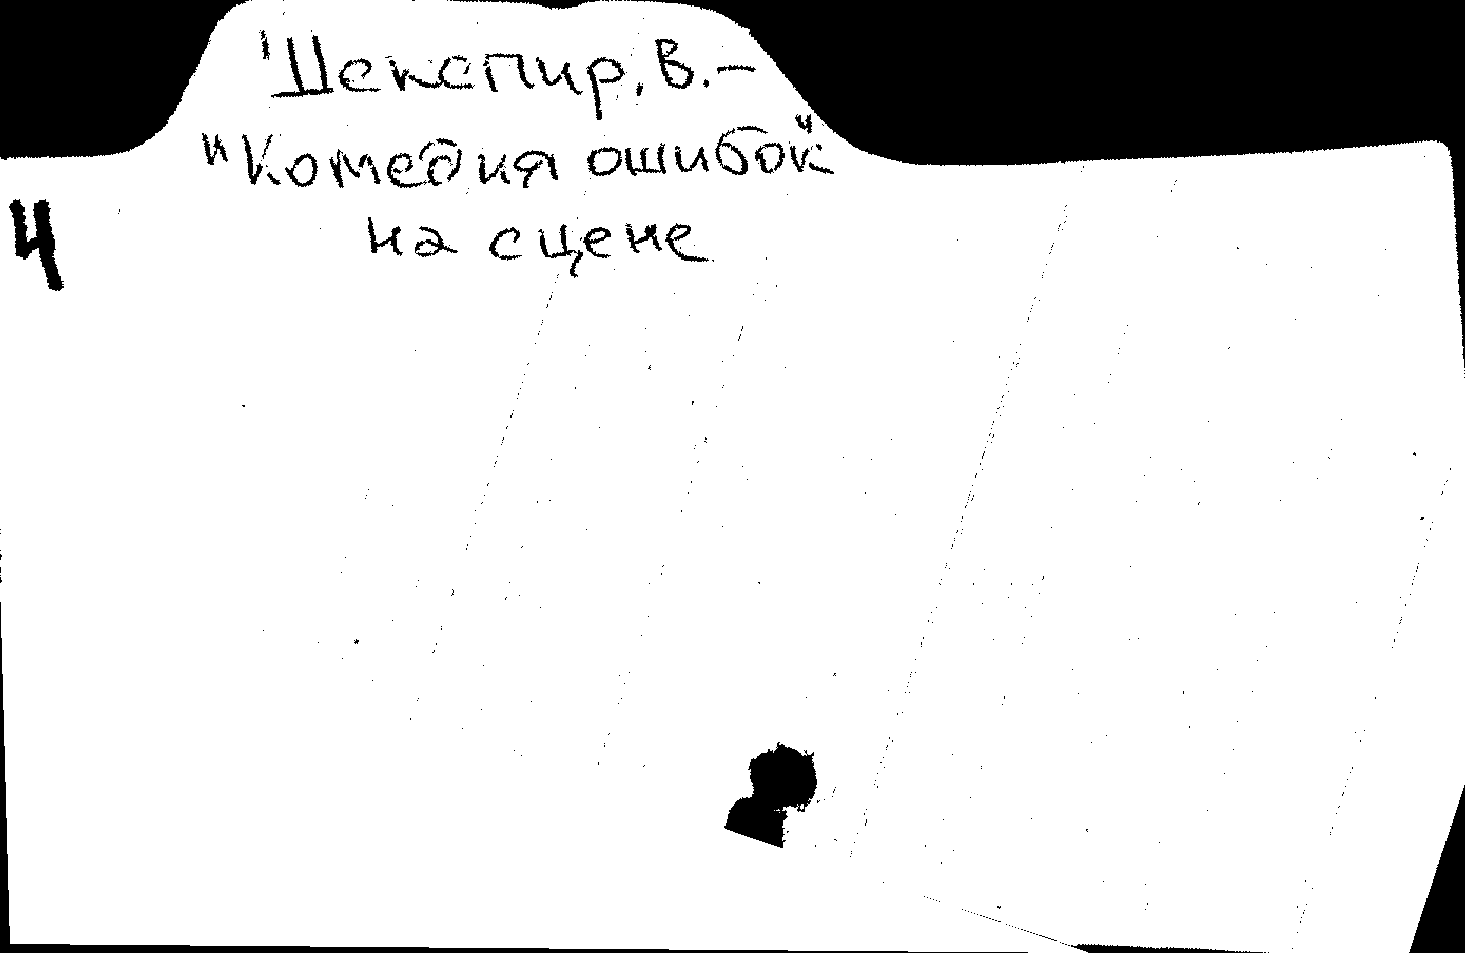 Шекспир, В. –
"Комедия ошибок"
на сцене
4